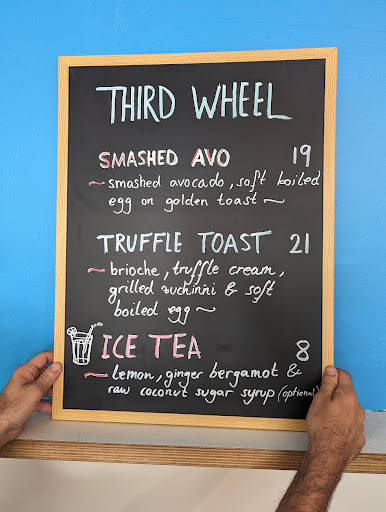 THIRD WHEEL
SMASHED AVO 19
~ smashed avocado, soft boiled
egg on golden toast ~
TRUFFLE TOAST 21
~ brioche, truffle cream,
grilled zuchinni & soft
boiled egg ~
ICE TEA 8
~ lemon, ginger bergamot &
raw coconut sugar syrup (optional)